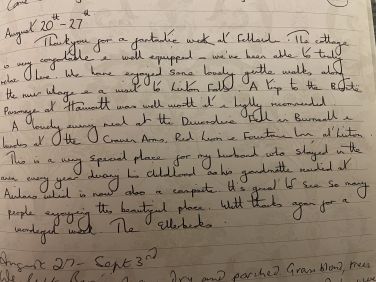 August 20th - 27th
Thankyou for a fantastic week at Fellside. The cottage
is very comfortable & well equipped - we've been able to truly
relax here. We have enjoyed some lovely gentle walks along
the river Wharfe & a visit to Linton Falls. A trip to the Brontë
Parsonage at Haworth was well worth it & highly recommended.
A lovely evening meal at the Devonshire Fell in Burnsall &
lunches at the Craven Arms, Red Lion & Fountaine Inn at Linton.
This is a very special place for my husband who stayed in the
area every year during his childhood as his grandmother resided at
which is now also a campsite. It's great to see so many
people enjoying this beautiful place. With thanks again for a
wonderful week. The
August 27 - Sept 3rd
dry and parched Grassland, trees